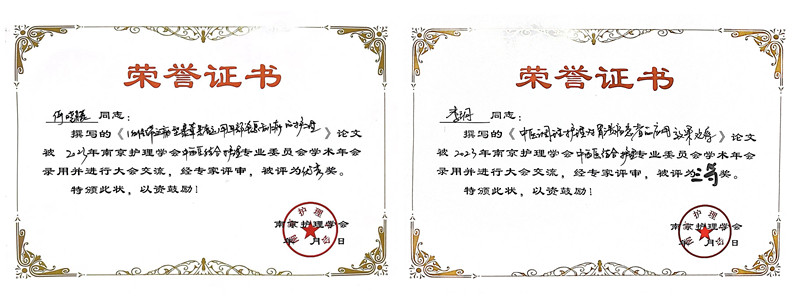 荣誉证书
同志：
撰写的《 》论文
被2023年南京护理学会中西医结合护理专业委员会学术年会
录用并进行大会交流，经专家评审，被评为优秀奖。
特颁此状，以资鼓励！
南京护理学会
年 月 日
荣誉证书
李玥 同志：
撰写的《中医调理护理为胃溃疡患者的应用效果 》论文
被2023年南京护理学会中西医结合护理专业委员会学术年会
录用并进行大会交流，经专家评审，被评为三等奖。
特颁此状，以资鼓励！
南京护理学会
年 月 日